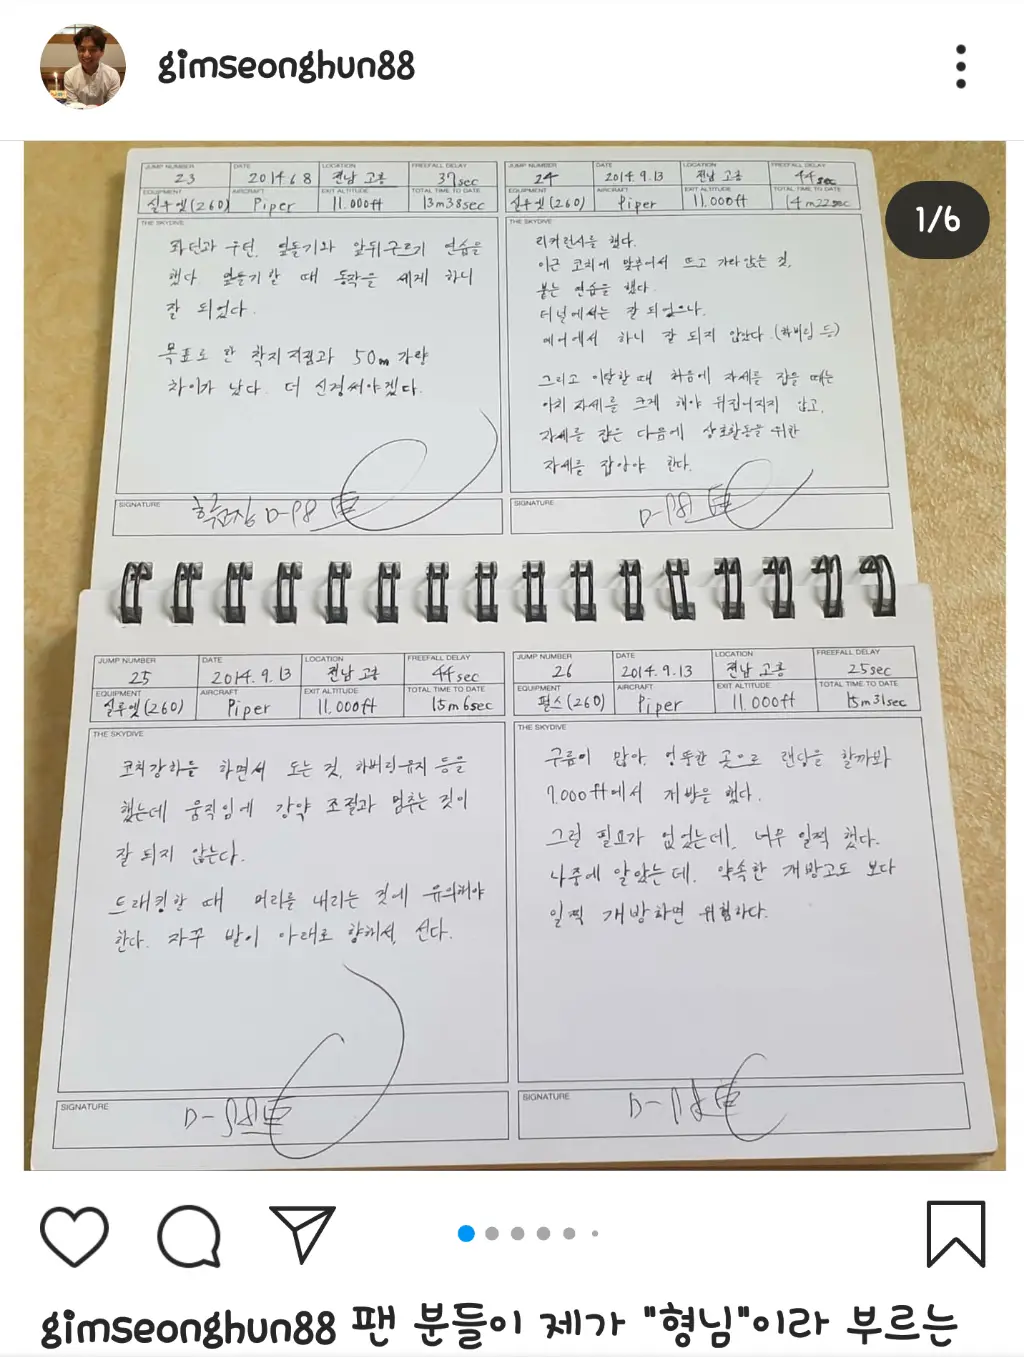 gimseonghun88
1/6
JUMP NUMBER DATE LOCATION FREEFALL DELAY
23 2014.6.8 전남 고흥 37sec
EQUIPMENT AIRCRAFT EXIT ALTITUDE TOTAL TIME TO DATE
실루엣(260) Piper 11.000ft 13m38sec
THE SKYDIVE
좌턴과 우턴, 옆돌기와 앞뒤구르기 연습을
했다 옆돌기 할 때 동작을 세게 하니
잘 되었다.
목표로 한 착지지점과 50m 가량
차이가 났다. 더 신경써야겠다.
SIGNATURE
학교장 D-98
JUMP NUMBER DATE LOCATION FREEFALL DELAY
24 2014.9.13 전남 고흥 44sec
EQUIPMENT AIRCRAFT EXIT ALTITUDE TOTAL TIME TO DATE
실루엣(260) Piper 11.000ft 14m22sec
THE SKYDIVE
리커런시를 했다.
이근 코치에 맞추어서 뜨고 가라앉는 것,
붙는 연습을 했다.
터널에서는 잘 되었으나.
에어에서 하니 잘 되지 않았다. (하버링 등)
그리고 이탈할 때 처음에 자세를 잡을 때는
아치 자세를 크게 해야 뒤집어지지 않고,
자세를 잡은 다음에 상호활동을 위한
자세를 잡아야 한다.
SIGNATURE
D-98
JUMP NUMBER DATE LOCATION FREEFALL DELAY
25 2014.9.13 전남 고흥 44sec
EQUIPMENT AIRCRAFT EXIT ALTITUDE TOTAL TIME TO DATE
실루엣(260) Piper 11.000ft 15m6sec
THE SKYDIVE
코치강하를 하면서 도는 것, 하버링 유지 등을
했는데 움직임에 강약 조절과 멈추는 것이
잘 되지 않는다.
드래킹할 때 머리를 내리는 것에 유의해야
한다. 자꾸 발이 아래로 향해서 선다.
SIGNATURE
D-98
JUMP NUMBER DATE LOCATION FREEFALL DELAY
26 2014.9.13 전남 고흥 25sec
EQUIPMENT AIRCRAFT EXIT ALTITUDE TOTAL TIME TO DATE
펄스(260) Piper 11.000ft 15m31sec
THE SKYDIVE
구름이 많아. 엉뚱한 곳으로 랜딩을 할까봐
7.000ft에서 개방을 했다.
그럴 필요가 없었는데, 너무 일찍 했다.
나중에 알았는데. 약속한 개방고도 보다
일찍 개방하면 위험하다.
SIGNATURE
D-98
gimseonghun88 팬 분들이 제가 "형님"이라 부르는